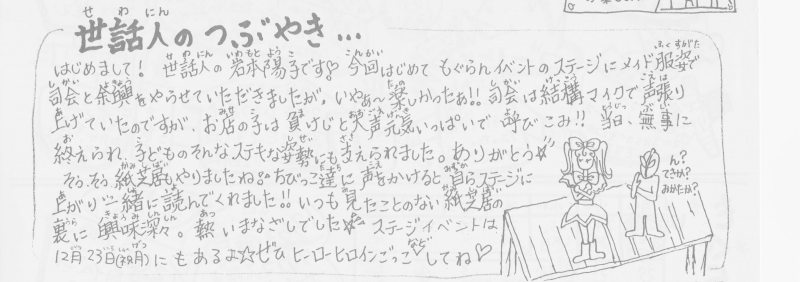 世話人のつぶやき…
はじめまして！ 世話人の岩本陽子です♡ 今回はじめて もぐらんイベントのステージにメイド服姿で
司会と余興をやらせていただきましたが、いやぁ〜楽しかったぁ!! 司会は結構マイクで声張り
上げていたのですが、お店の子は負けじと大声元気いっぱいで呼びこみ!! 当日、無事に
終えられ、子どものそんなステキな姿勢にも支えられました。ありがとう☆
そう、そう、紙芝居もやりましたね。ちびっこ達に声をかけると自らステージに
上がり、一緒に読んでくれました!! いつも見たことのない紙芝居の
裏に興味深々。熱いまなざしでした☆ ステージイベントは
12月23日(祝月)にもあるよ☆ぜひヒーローヒロインごっこなどしてね♡
ん?
てきか?
みかたか?